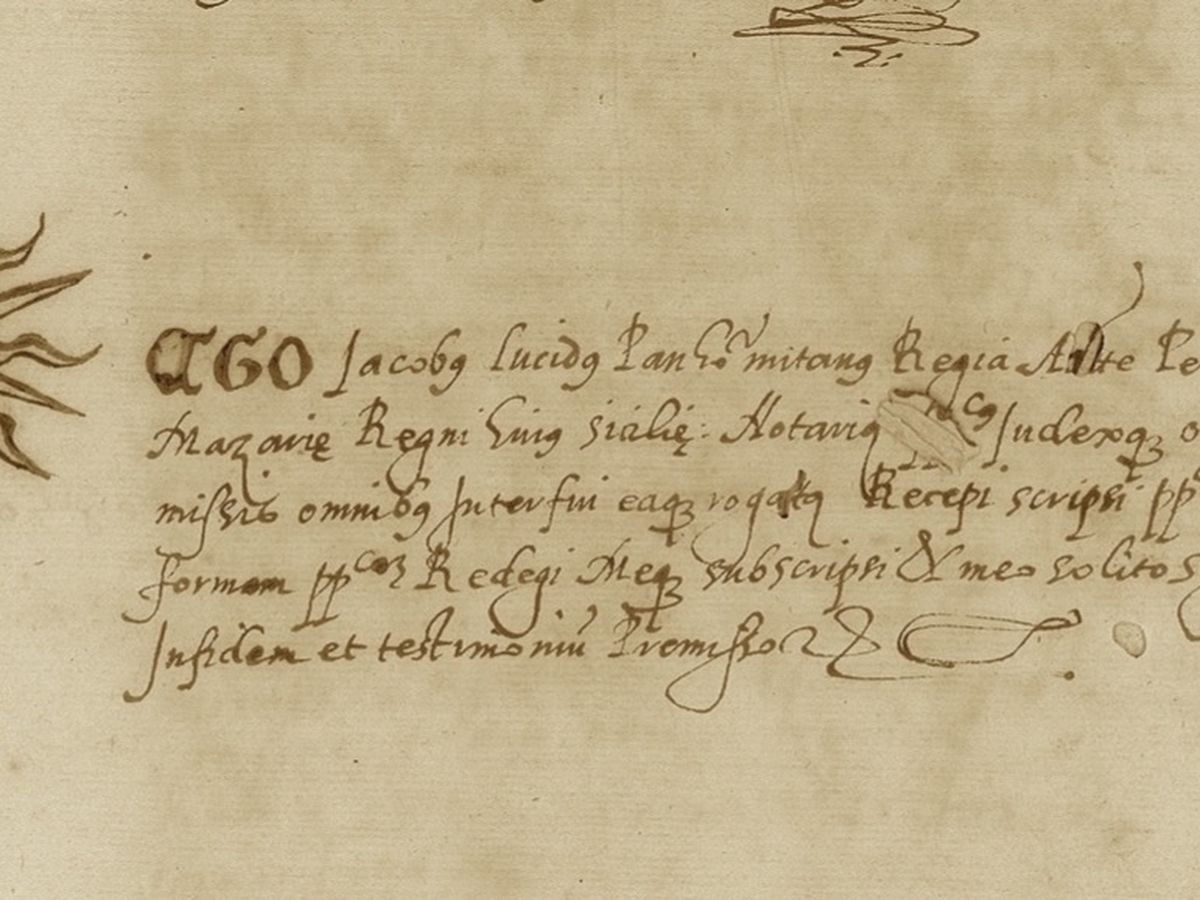 EGO Jacobꝰ Lucidꝰ Panhormitanꝰ Regia Aucte Pe
Mazarię Regni huiꝰ Sicilię: Notariꝰ Judexqꝫ o
missis omnibꝰ Interfui eaqꝫ rogatꝰ Recepi scripsi pp
formam ppcam Redegi Meqꝫ subscripsi & meo solito s
Infidem et testimoniū Premissoꝝ